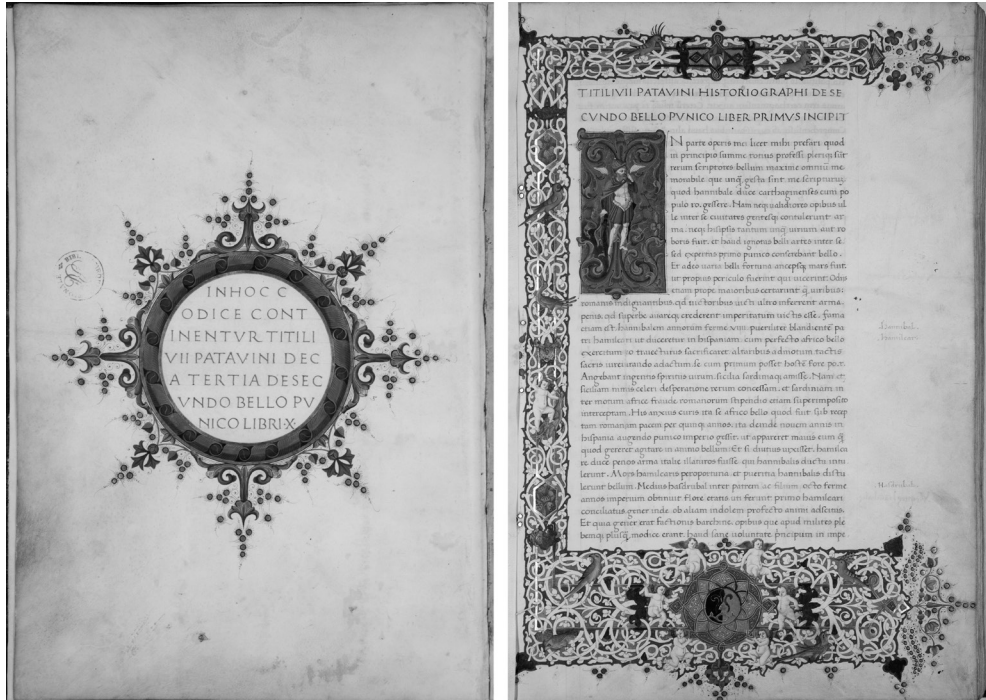 IN HOC C
ODICE CONT
INENTVR TITI LI
VII PATAVINI DEC
A TERTIA DE SEC
VNDO BELLO PV
NICO LIBRI·X·
TITI LIVII PATAVINI HISTORIOGRAPHI DE SE
CVNDO BELLO PVNICO LIBER PRIMVS INCIPIT
N parte operis mei licet mihi prefari quod
in principio summe totius professi plerique sūt
rerum scriptores bellum maxime omniū me
morabile que unq̄ gesta sint me scripturum
quod hannibale duce carthaginenses cum po
pulo ro. gessere. Nam neq; ualidiores opibus ul
le inter se ciuitates gentesq; contulerunt ar
ma. neq; hisipsis tantum unq̄ uirium aut ro
boris fuit. et haud ignotas belli artes inter se
sed expertas primo punico conserebant bello.
Et adeo uaria belli fortuna ancepsq; mars fuit.
ut propius periculo fuerint qui uicerunt. Odiis
etiam prope maioribus certarunt q̄ uiribus:
romanis indignantibus qd uictoribus uicti ultro inferrent arma.
penis. qd superbe auareq; crederent imperitatum uictis esse. fama
etiam est hannibalem annorum ferme
tri hamilcari ut duceretur in hispaniam. cum perfecto africo bello
exercitum eo traiecturus sacrificaret. altaribus admotum tactis
sacris iureiurando adactum se cum primum posset hostē fore po.r.
Angebant ingentis spiritus uirum sicilia sardiniaq; amisse. Nam et
siciliam nimis celeri desperatione rerum concessam. et sardiniam in
ter motum africe fraude romanorum stipendio etiam superimposito
interceptam. His anxius curis ita se africo bello quod fuit sub recen
tem romanam pacem per quinq; annos. ita deinde nouem annis in
hispania augendo punico imperio gessit. ut appareret maius eum q̄
quod gereret agitare in animo bellum. Et si diutius uixisset. hamilca
re duce penos arma italie illaturos fuisse. qui hannibalis ductu intu
lerunt. Mors hamilcaris peropportuna. et pueritia hannibalis distu
lerunt bellum. Medius hasdrubal inter patrem ac filium. octo ferme
annos imperium obtinuit flore etatis un ferunt primo hamilcari
conciliatus gener inde ob aliam indolem profecto animi adscitus.
Et quia gener erat factionis barchine. opibus que apud milites ple
bemq; plusq̄ modice erant. haud sane uoluntate principum in impe